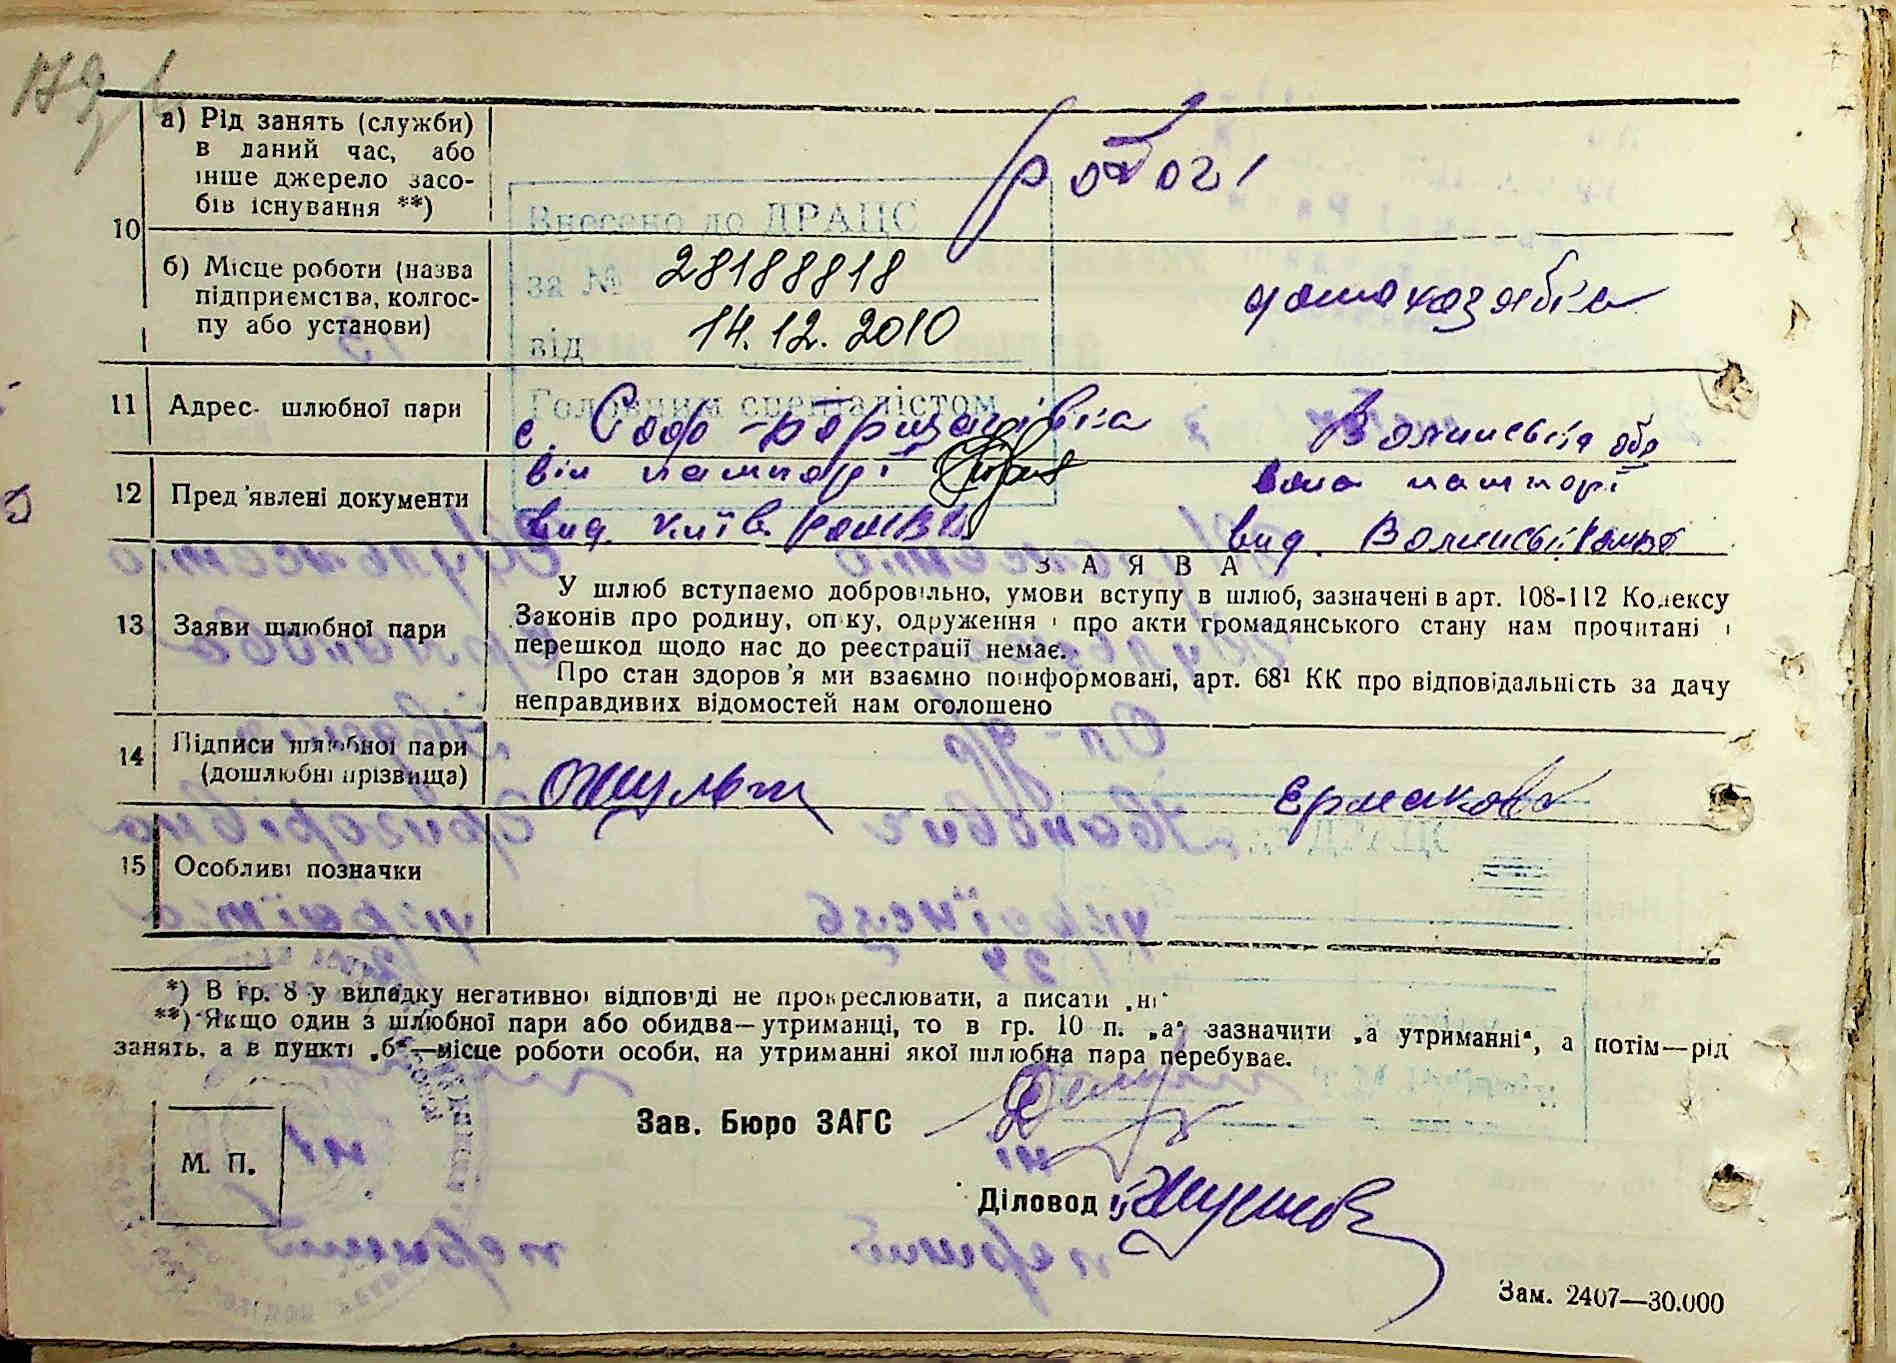 179
10
а) Рід занять (служби)
в даний час, або
інше джерело засо-
бів існування **)
робочі
Внесено до ДРАЦС
за № 28188818
від 14.12.2010
Головним спеціалістом
б) Місце роботи (назва
підприємства, колгос-
пу або установи)
домохазяйка
11 Адрес шлюбної пари
с. Соф-Борщагівка
Волинська обл
12 Пред'явлені документи
він паспорт
вид. Київ.
вона паспорт
вид. Волинськ
З А Я В А
13 Заяви шлюбної пари
У шлюб вступаємо добровільно, умови вступу в шлюб, зазначені в арт. 108-112 Кодексу
Законів про родину, опіку, одруження і про акти громадянського стану нам прочитані і
перешкод щодо нас до реєстрації немає.
Про стан здоров'я ми взаємно поінформовані, арт. 68¹ КК про відповідальність за дачу
неправдивих відомостей нам оголошено
14 Підписи шлюбної пари
(дошлюбні прізвища)
Єрмакова
15 Особливі позначки
*) В гр. 8 у випадку негативної відповіді не прокреслювати, а писати „ні"
**) Якщо один з шлюбної пари або обидва—утриманці, то в гр. 10 п. „а" зазначити „а утриманні", а потім—рід
занять, а в пункті „б"—місце роботи особи, на утриманні якої шлюбна пара перебуває.
Зав. Бюро ЗАГС
М. П.
Діловод
Зам. 2407—30.000